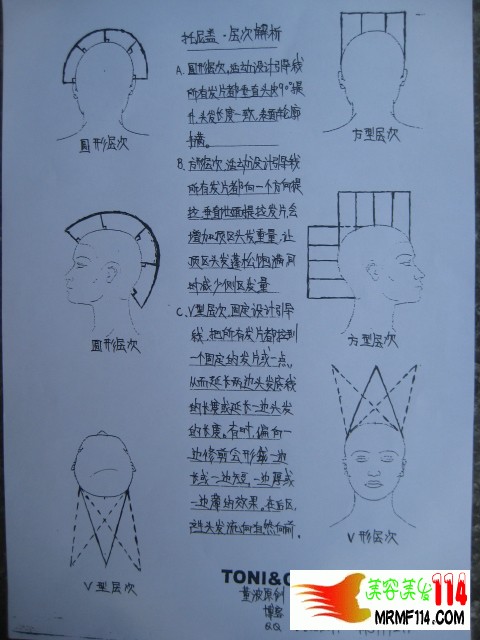 托尼盖·层次解析
A. 圆形层次,活动设计引导线
所有发片都垂直头皮90°提
升,头发长度一致,表面轮廓
饱满。
B. 方形层次,活动设计引导线
所有发片都向一个方向提
拉,垂直地面提拉发片,会
增加顶区头发重量,让
顶区头发蓬松饱满,同
时减少侧区发量
C. V型层次,固定设计引导
线,把所有发片都拉到
一个固定的发片或一点,
从而延长两边头发底线
的长度或延长一边头发
的长度。有时,偏向一
边修剪会形成一边
长或一边短,一边厚或
一边薄的效果。在后区,
头发流向自然向前。
圆形层次
方型层次
圆形层次
方型层次
V型层次
V形层次
TONI&G
原创
博客
QQ
美容美发114
MRMF114.COM